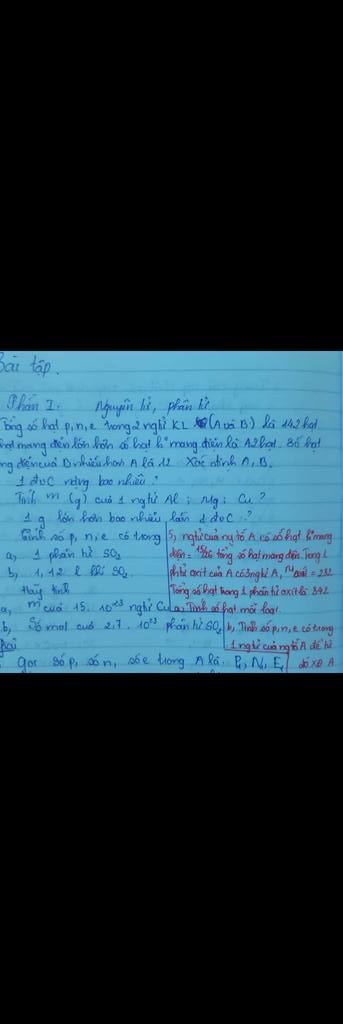 Bài tập.
Phần I: Nguyên tử, phân tử
Tổng số hạt p, n, e trong 2 ngtử KL (A và B) là 142 hạt
hạt mang điện lớn hơn số hạt k° mang điện là 42 hạt. Số hạt
ng điện của B nhiều hơn A là 12 Xác định A, B.
1 đvC nặng bao nhiêu?
Tính m (g) của 1 ngtử Al; Mg; Cu?
1 g lớn hơn bao nhiêu lần 1 đvC?
Tính số p, n, e có trong
a, 1 phân tử SO2
b, 1,12 l khí SO2.
Hãy tính
a, m của 15.10²³ ngtử Cu
b, Số mol của 2,7.10²³ phân tử SO2
giải
Gọi số p, số n, số e trong A là: P1, N1, E1
5, ngtử của ng tố A có số hạt k° mang
điện = 15/26 tổng số hạt mang điện. Trong 1
phtử oxit của A có 3 ngtử A, = 232
Tổng số hạt trong 1 phân tử oxit là 342
a, Tính số hạt mỗi loại.
b, Tính số p, n, e có trong
1 ngtử của ng tố A để từ
đó xđ A